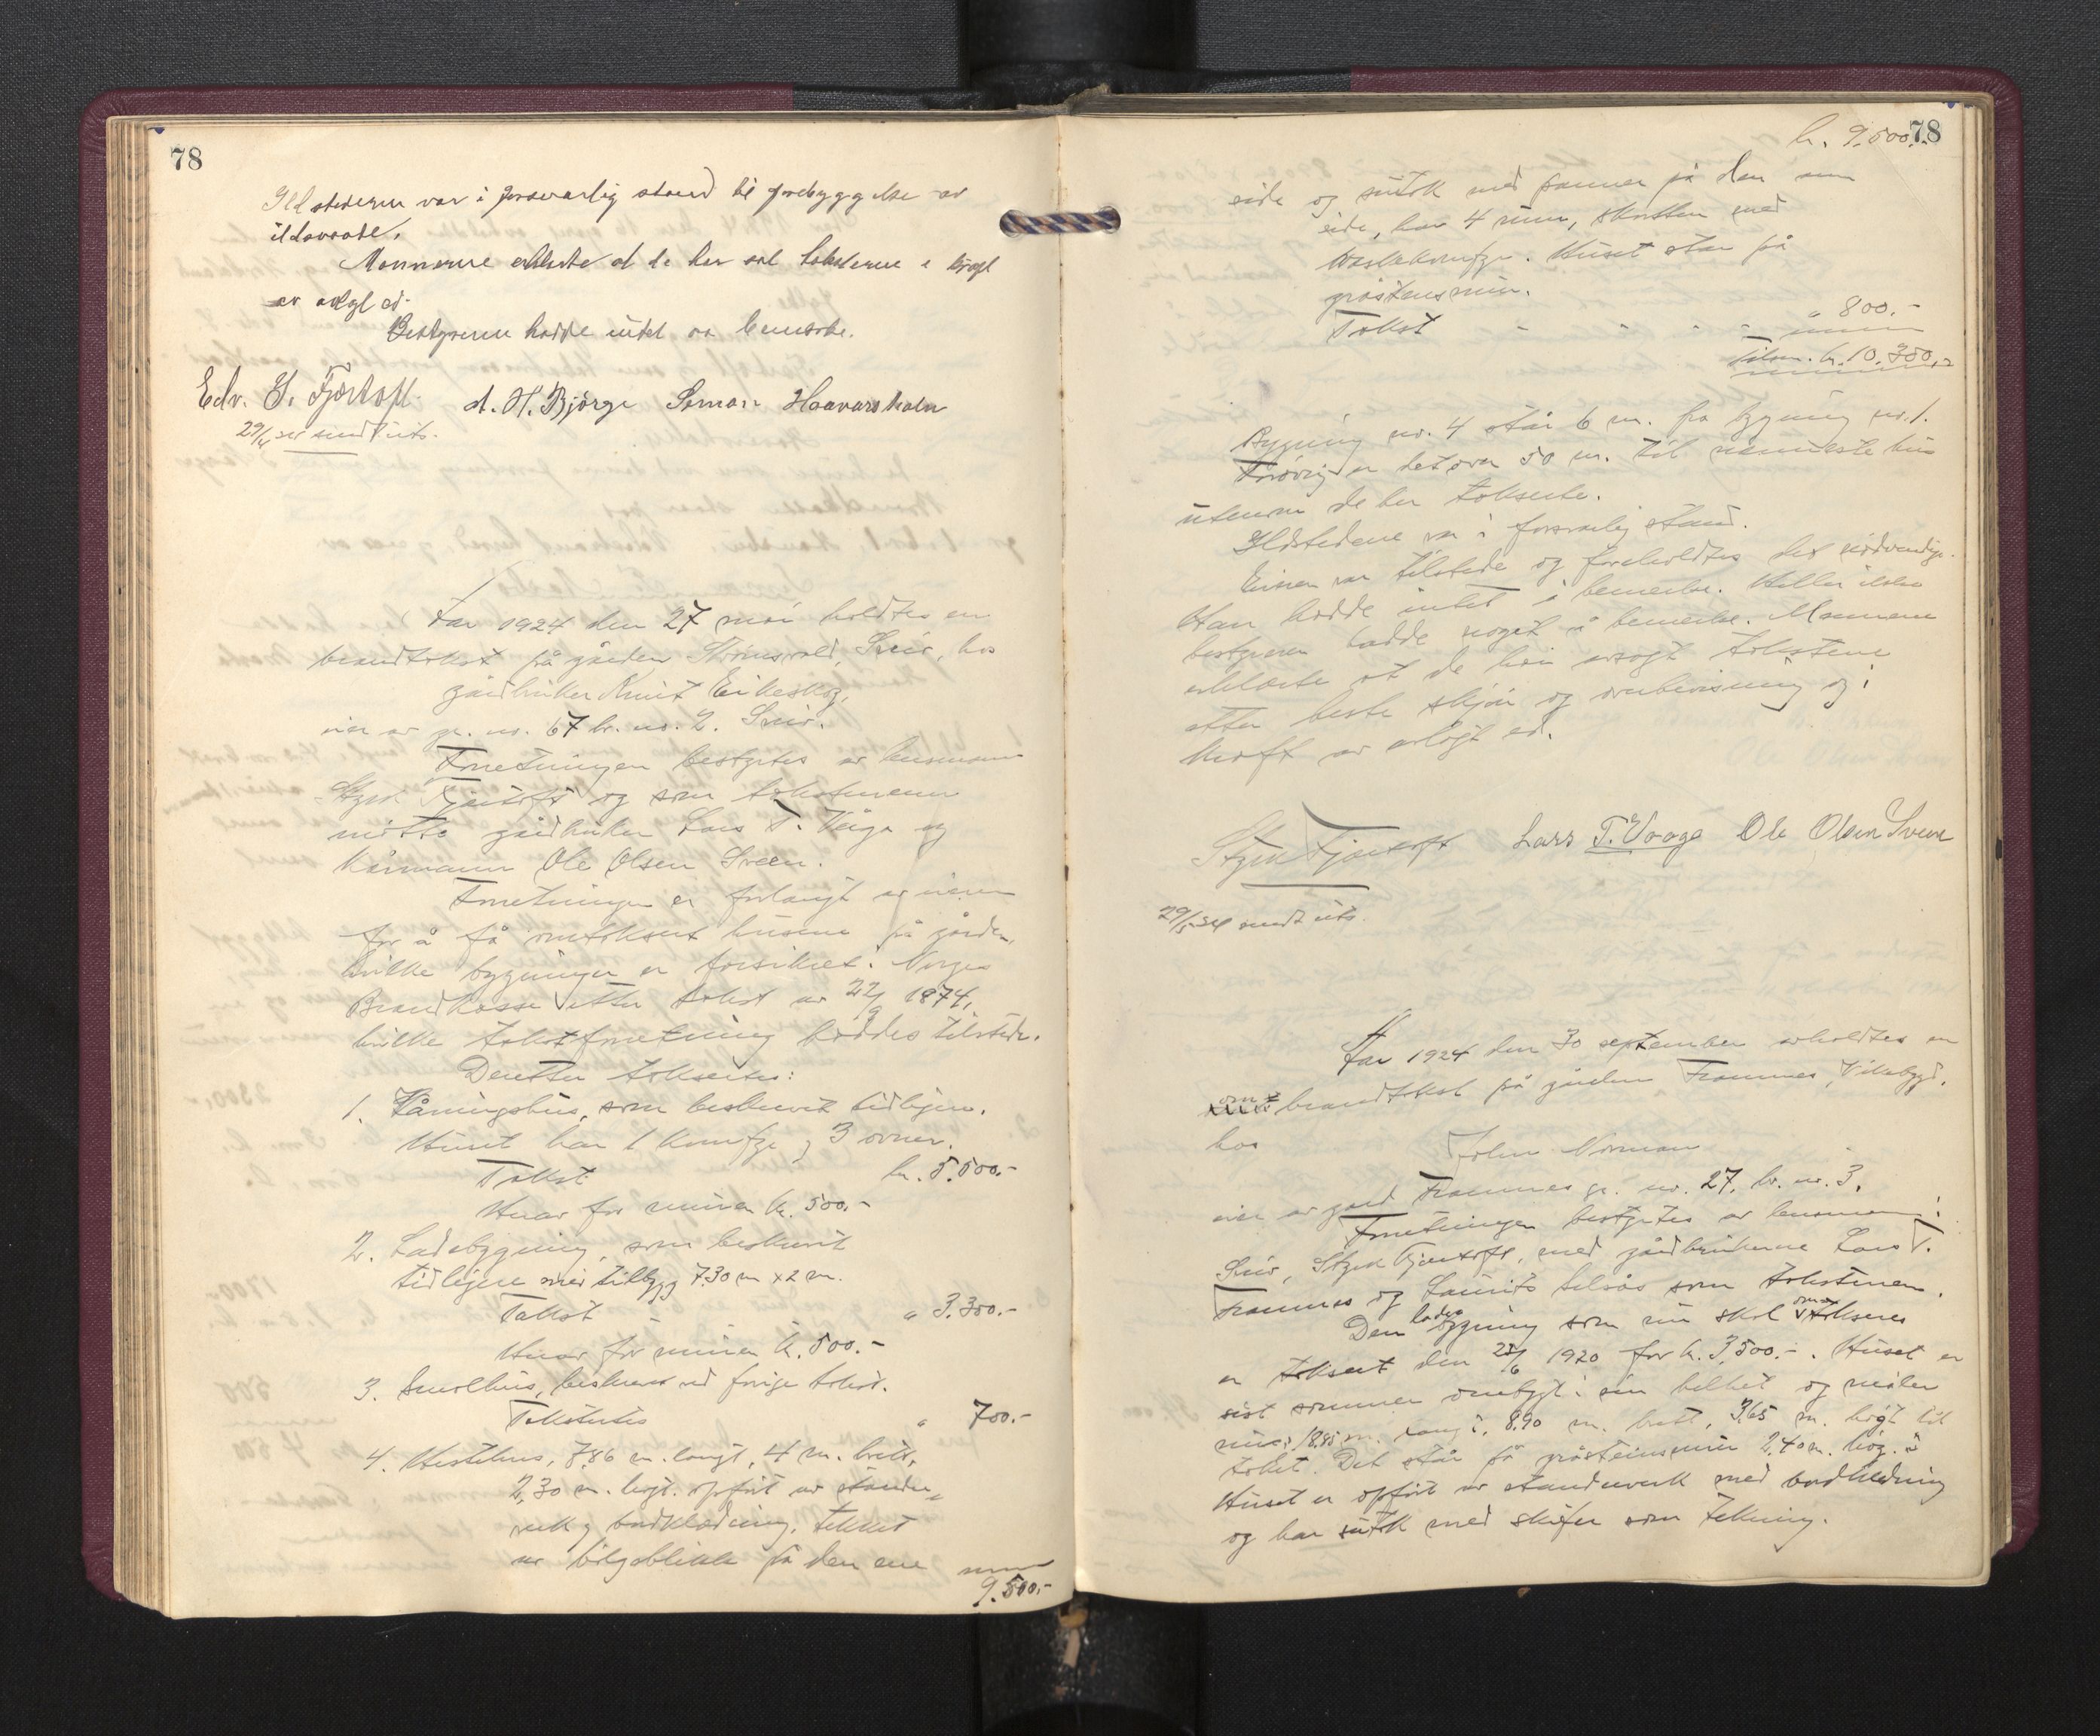 78
Ildstederne var i forsvarlig stand til forebyggelse av
ildsvaade.
Mænnerne erklærte at de har sat taksterne i kraft
av avlagt ed.
Bestyreren hadde intet aa bemerke.
Edv. G. Fjørtoft. A. H. Bjørge Simon Haavarsholm
29/4 sendt uts.
Aar 1924 den 27 mai holdtes en
brandtakst på gården Strømsvold, Sviv, hos
gårdbruker Knut Eikeskog,
eier av gr. nr. 67 br. nr. 2. Sviv.
Forretningen bestyrtes av lensmann
Styrk Fjørtoft og som takstmenn
møtte gårdbruker Lars T. Våge og
kårmann Ole Olsen Sveen.
Forretningen er forlangt av eieren
for å få omtaksert husene på gården,
hvilke bygninger er forsikret i Norges
Brandkasse efter takst av 22/9 1874,
hvilke takstforretning hadde tilstede.
Derefter takseertes:
1. Våningshus, som beskrevet tidligere.
Huset har 1 komfyr og 3 ovner.
Takst kr. 5.500.-
Hvorav for muren kr. 500.-
2. Ladebygning, som beskrevet
tidligere med tilbygg 7.30 m x 2 m.
Takst - " 3.300.-
Hvorav for muren kr. 500.-
3. Smalhus, beskrevet ved forrige takst.
Taksertes " 700.-
4. Hestehus, 7,86 m. langt, 4 m. bredt,
2,30 m. høgt. opført av stender-
verk og bordklædning, tekket
av bølgeblikk på den ene
9.500.-
78
kr. 9.500.-
side og sutak med panner på den annen
side, har 4 rum, skorsten med
vaskekomfyr. Huset står på
gråstensmur.
Takst - - - - " 800.-
Tilsm. kr. 10.300.-
Bygning nr. 4 står 6 m. fra bygning nr. 1.
Forøvrig er det over 50 m. til nærmeste hus
utenom de her takserte.
Ildstedene var i forsvarlig stand.
Eieren var tilstede og foreholdtes det nødvendige.
Han hadde intet å bemerke. Heller ikke
bestyreren hadde noget å bemerke. Mennene
erklærte at de har avsagt takstene
efter beste skjøn og overbevisning og i
kraft av avlagt ed.
Styrk Fjørtoft Lars T. Vaage Ole Olsen Sveen
29/5 24 sendt uts.
Aar 1924 den 30 september avholdtes en
om- brandtakst på gården Framnes, Vikebygd,
hos John Norman
eier av gård Framnes gr. nr. 27, br. nr. 3.
Forretningen bestyrtes av lensmannen i
Sviv, Styrk Fjørtoft, med gårdbrukerne Lars T.
Framnes og Laurits som takstmenn.
Den lade bygning som nu skal om takseres
er taksert den 25/6 1920 for kr. 3,500.-. Huset er
sist sommer ombygt i sin helhet og måler
nu: 18.85 m. langt, 8.90 m. bredt, 3,65 m. høgt til
taket. Det står på gråsteinsmur 2,40 m. høg.
Huset er opført av stenderverk med bordkledning
og har sutak med skifer som tekning.